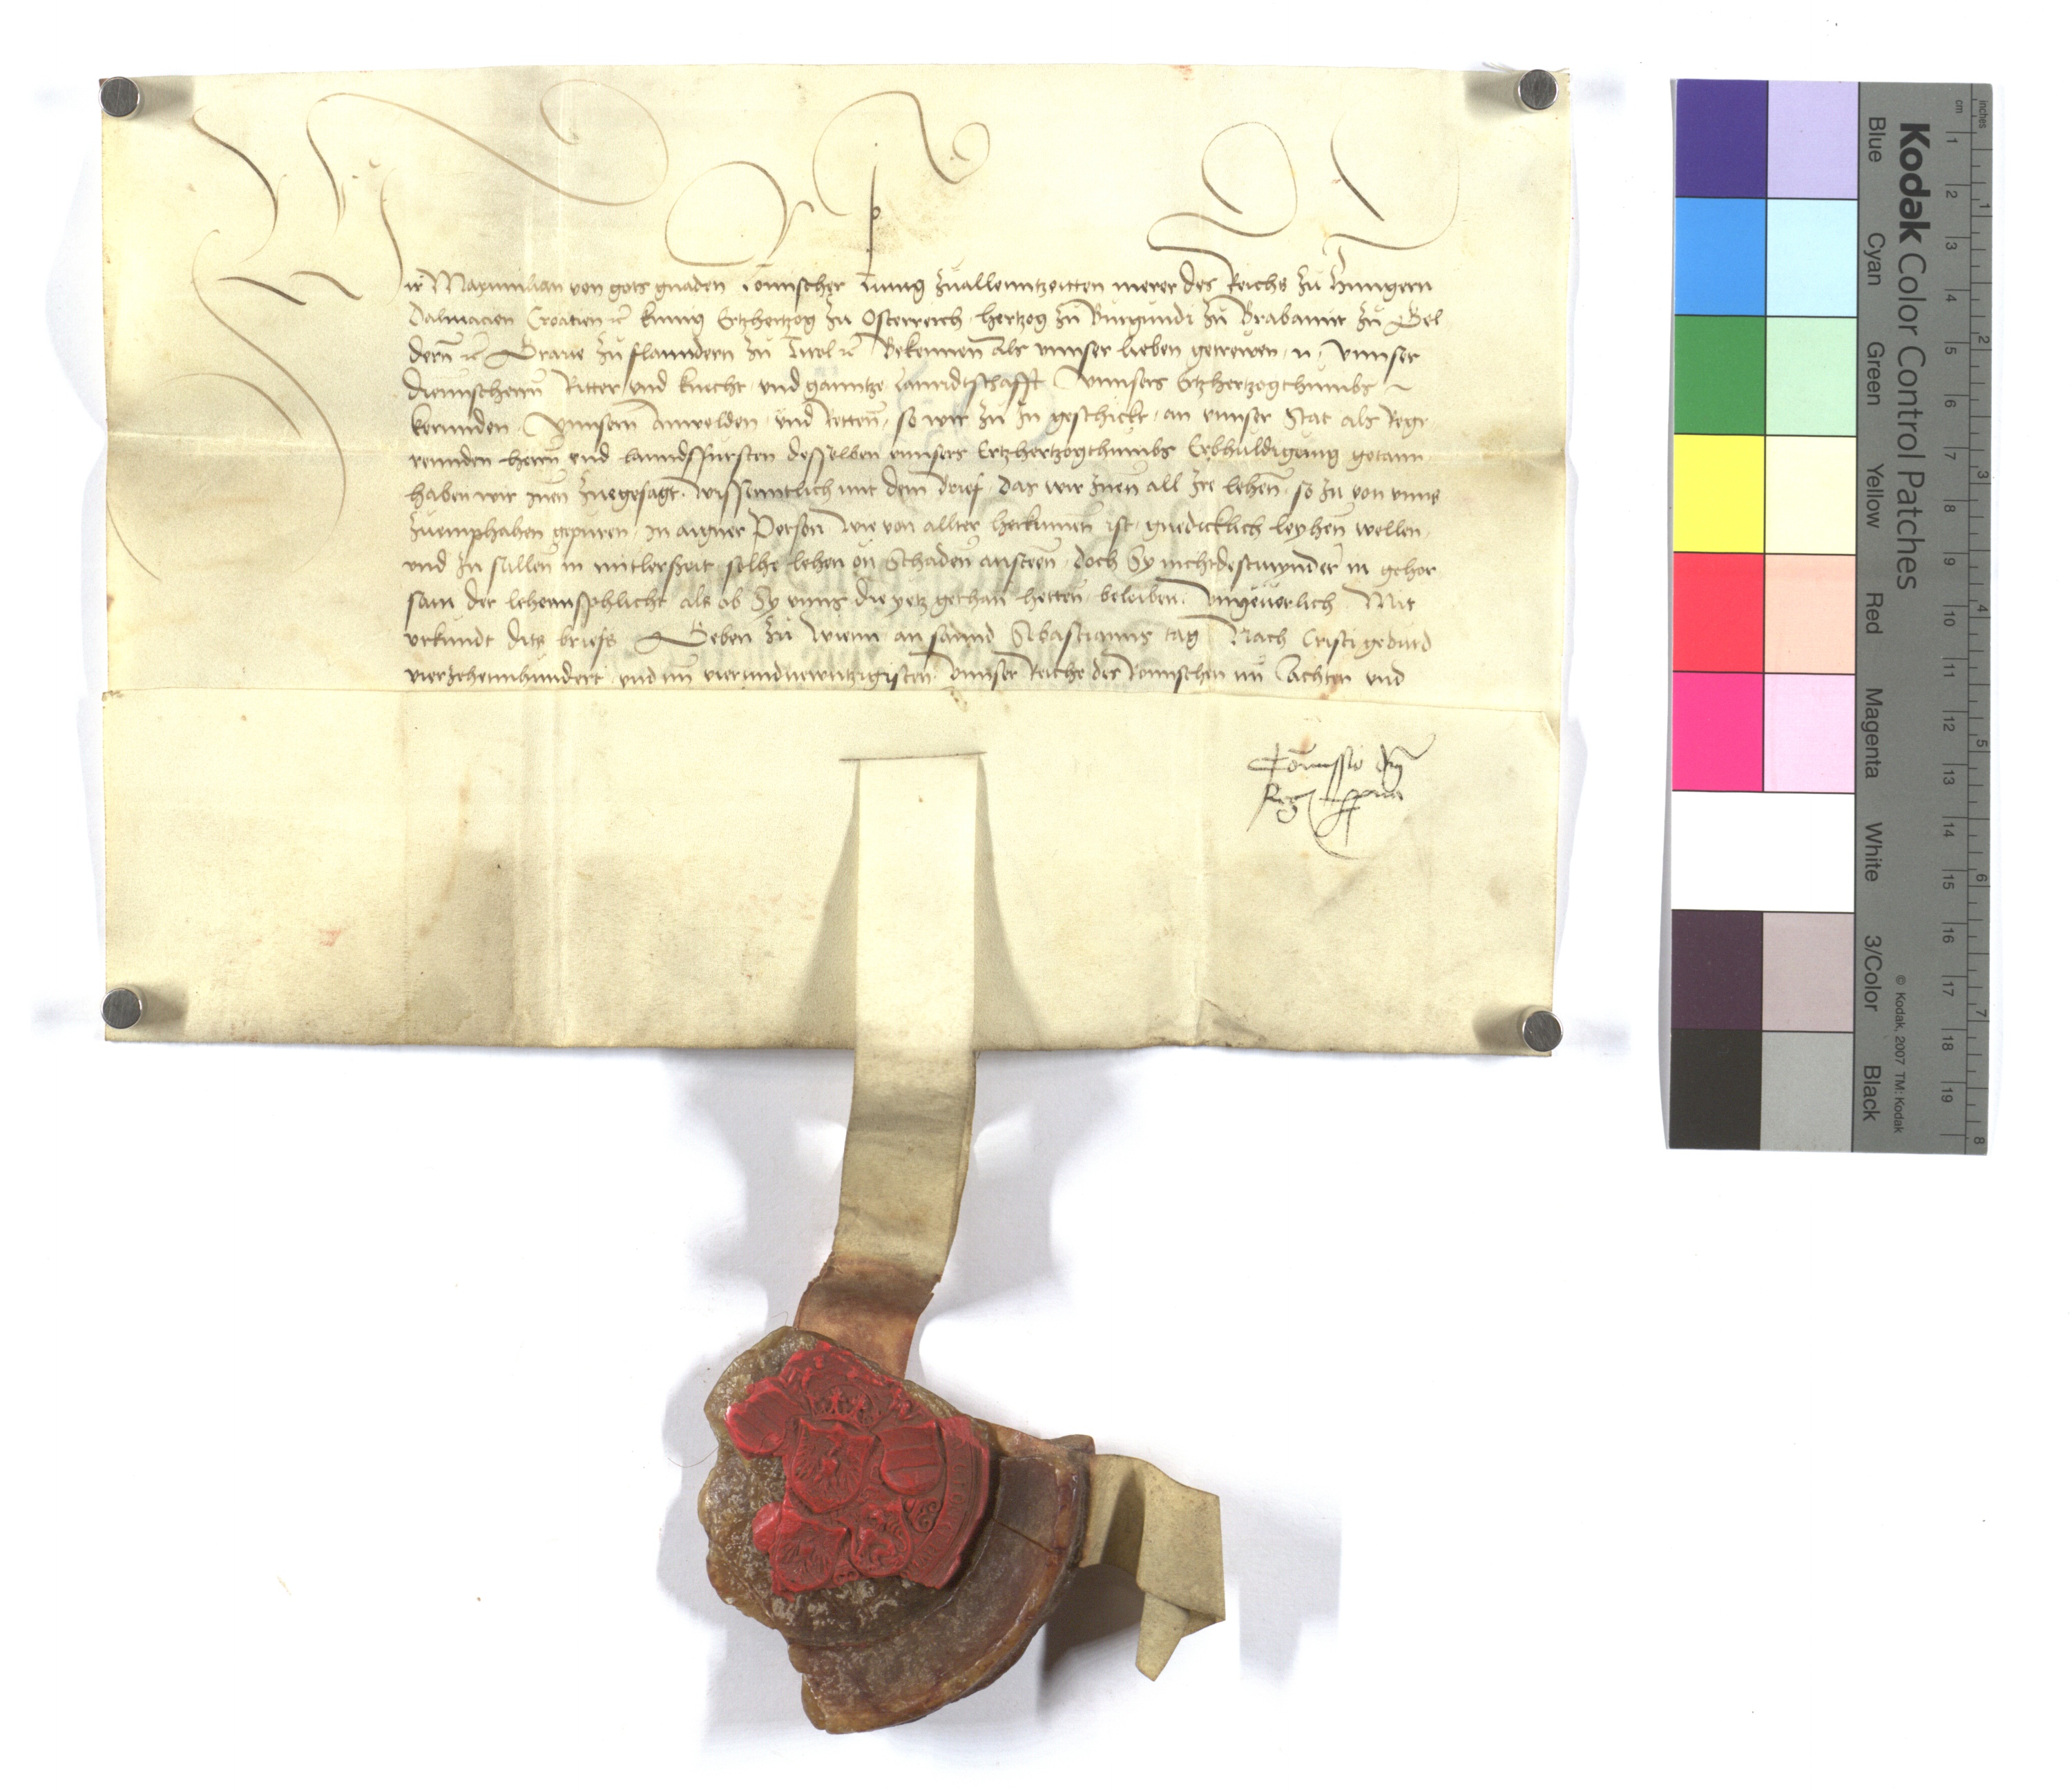 Wir Maximilian von gots gnaden Romischer kunig zuallenntzeitten merer des Reichs zu Hungern
Dalmacien Croatien etc kunig Ertzhertzog zu Osterreich hertzog zu Burgundi zu Brabannt zu Gel
dern etc Graue zu flanndern zu Tirol etc Bekennen Als vnnser lieben getrewen n vnnser
dinnstherrn Ritter vnd knecht vnd ganntze Lanndtschafft vnnsers Ertzhertzogthumbs
kernnden vnnsern Anwelden vnd Retten so wir zu In geschickt an vnnser Stat als Regi
rennden herrn vnd lanndsfursten desselben vnnsers Ertzhertzogthumbs Erbhuldigung getann
haben wir Inen zuegesagt wissenntlich mit dem brief das wir Inen all Ire lehen so In von vnns
zuemphahen gepuren in aigner Person wie von allter herkumen ist gnedicklich leyhen wellen
vnd In sullen in mitlerzeit solhe lehen on Schaden ansteen doch Sy nichtdestmynder in gehor
sam der lehennsphlicht als ob Sy vnns die yetz gethan hetten beleiben vngeuerlich Mit
vrkundt dits briefs Geben zu Wienn an sannd Sebastianns tag Nach Cristi geburd
vierzehennhundert vnd im vierundnewntzigisten vnnser Reiche des Romischen im Achten vnd
Comissio dni
Regis ppria
Kodak Color Control Patches
Blue Cyan Green Yellow Red Magenta White 3/Color Black
© Kodak, 2007 TM: Kodak
cm 1 2 3 4 5 6 7 8 9 10 11 12 13 14 15 16 17 18 19
inches 1 2 3 4 5 6 7 8